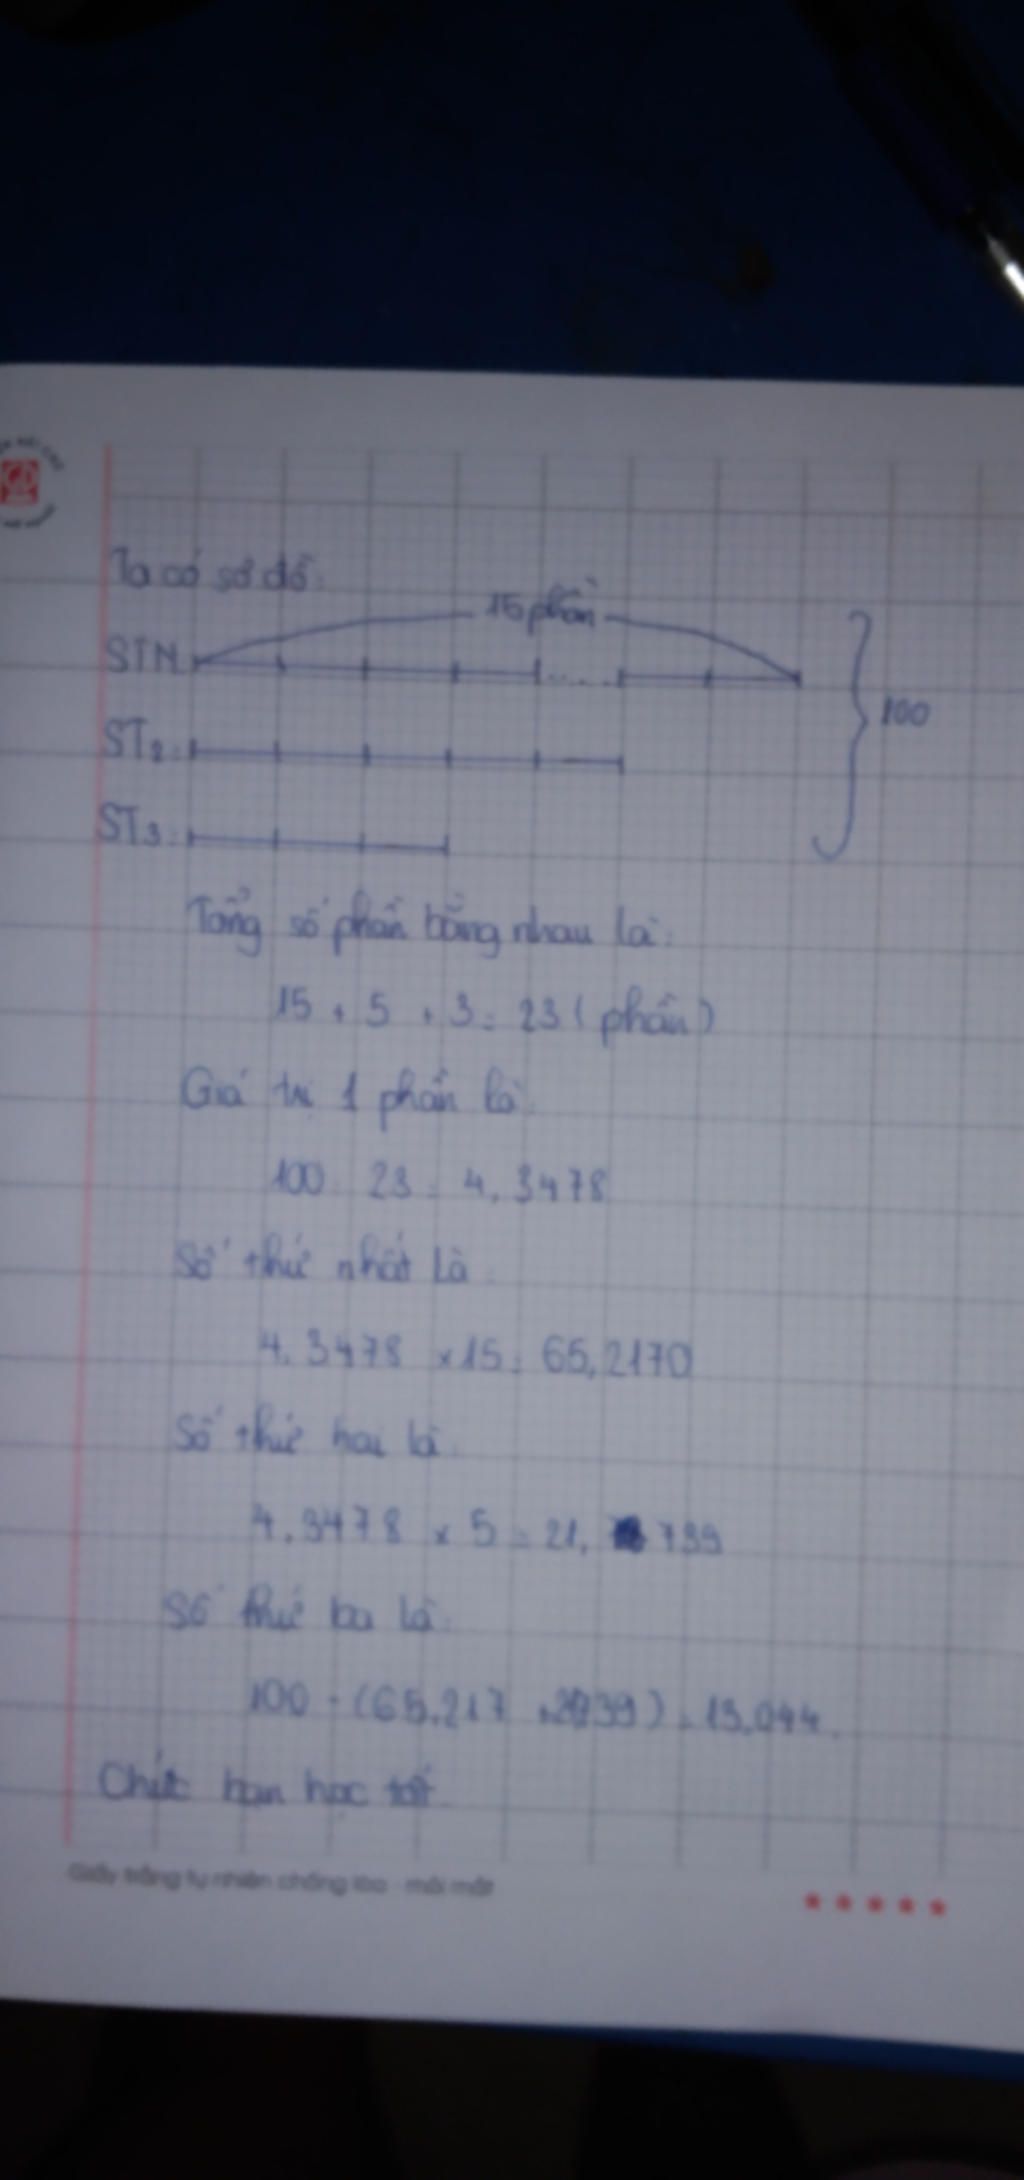 Ta có sơ đồ:
15 phần
STN:
100
ST2:
ST3:
Tổng số phần bằng nhau là:
15 + 5 + 3 = 23 (phần)
Giá trị 1 phần là:
100 : 23 = 4,3478
Số thứ nhất là:
4,3478 x 15 = 65,2170
Số thứ hai là:
4,3478 x 5 = 21,739
Số thứ ba là:
100 - (65,217 + 39) = 13,044
Chúc bạn học tốt
Giấy trắng tự nhiên chống lóa - mỏi mắt